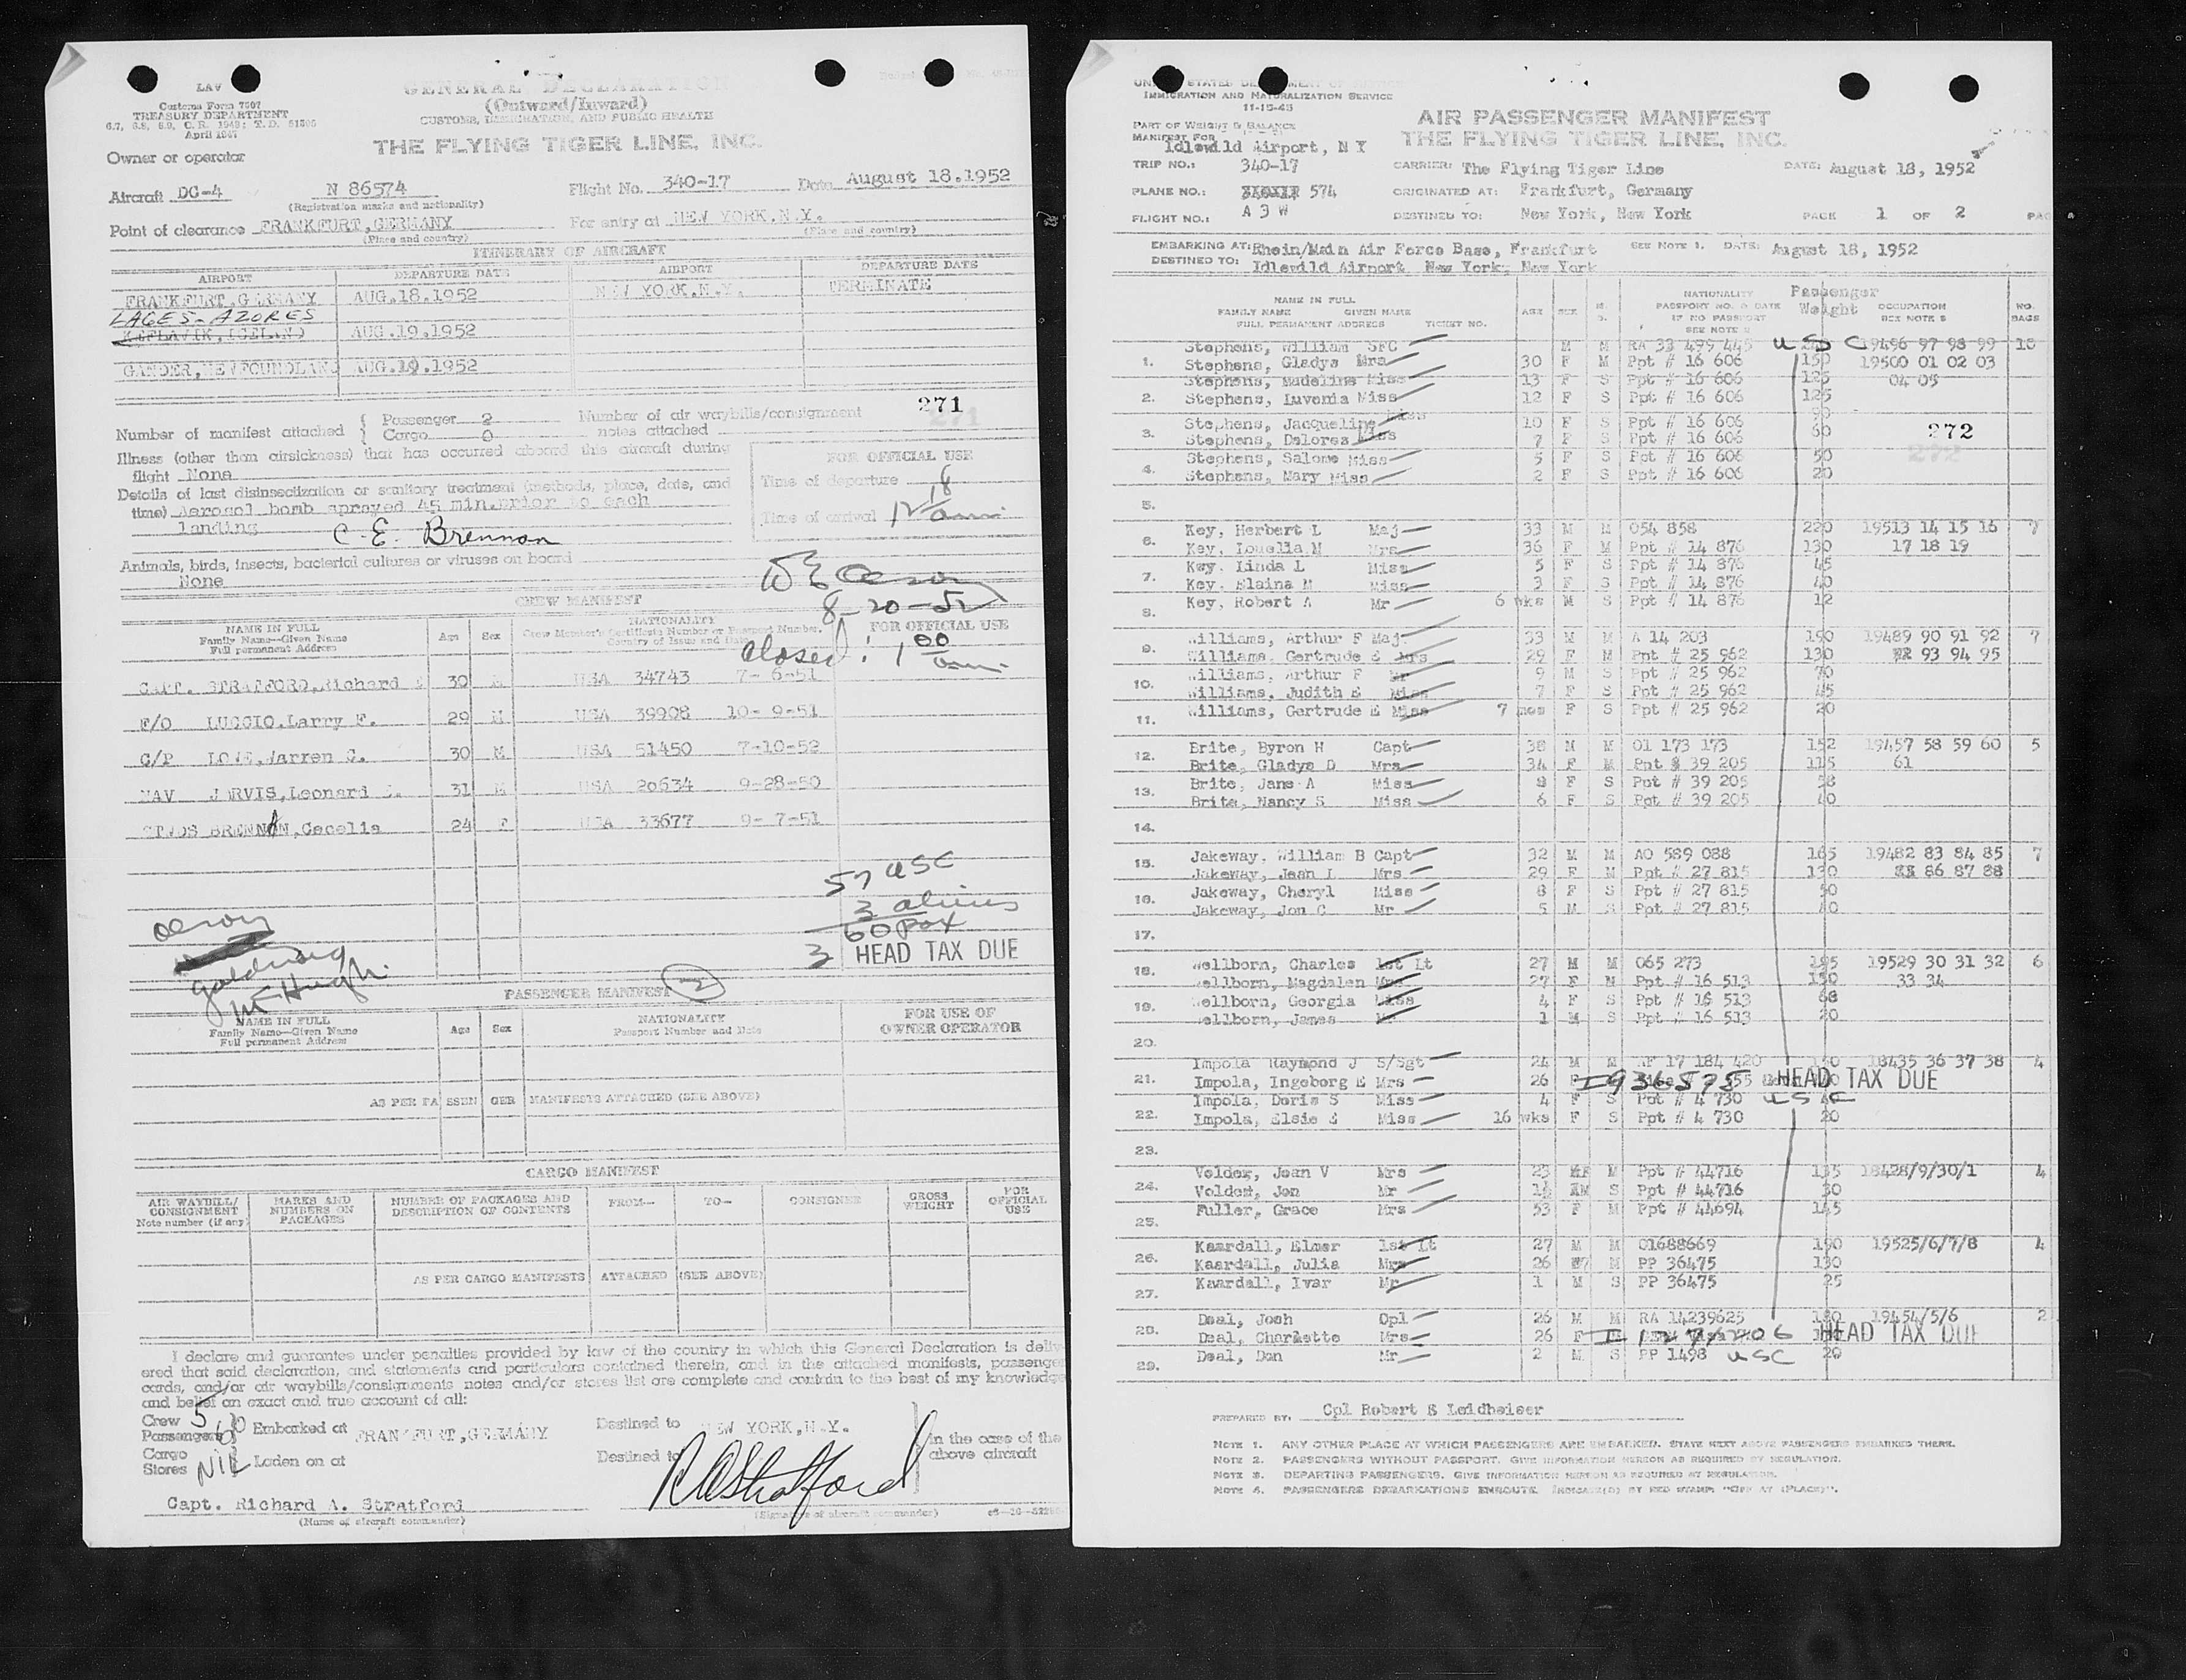 LAV
Customs Form 7507
TREASURY DEPARTMENT
6.7, 6.8, 6.9, C. R. 1943; T. D. 51505
April 1947
GENERAL DECLARATION
(Outward/Inward)
CUSTOMS, IMMIGRATION, AND PUBLIC HEALTH
THE FLYING TIGER LINE, INC.
Owner or operator
Aircraft DC-4 N 86574 Flight No. 340-17 Date August 18.1952
(Registration marks and nationality)
Point of clearance FRANKFURT,GERMANY For entry at NEW YORK.N.Y.
(Place and country) (Place and country)
ITINERARY OF AIRCRAFT
AIRPORT DEPARTURE DATE AIRPORT DEPARTURE DATE
FRANKFURT,GERMANY AUG.18.1952 NEW YORK.N.Y. TERMINATE
LAGES-AZORES
KEFLAVIK,ICELAND AUG.19.1952
GANDER,NEWFOUNDLAND AUG.19.1952
271
Number of manifest attached { Passenger 2 Number of air waybills/consignment
Cargo 0 notes attached
Illness (other than airsickness) that has occurred aboard this aircraft during
flight None
FOR OFFICIAL USE
Details of last disinsectization or sanitary treatment (methods, place, date, and
time) Aerosol bomb sprayed 45 min.prior to each
landing
Time of departure
Time of arrival
C. E. Brennan
Animals, birds, insects, bacterial cultures or viruses on board
None
8-20-52
CREW MANIFEST
NAME IN FULL
Family Name—Given Name
Full permanent Address
Age Sex
NATIONALITY
Crew Member's Certificate Number or Passport Number,
Country of Issue and Date
FOR OFFICIAL USE
closed: 1 00 am
CAPT. STRATFORD,Richard 30 M USA 34743 7- 6-51
F/O LUCCIO,Larry F. 29 M USA 39908 10- 9-51
C/P LOVE,Warren G. 30 M USA 51450 7-10-52
NAV JARVIS,Leonard 31 M USA 20634 9-28-50
BRENNAN,Cecelia 24 F USA 33677 9- 7-51
57 USC
3 aliens
60 pax
3 HEAD TAX DUE
McHugh
PASSENGER MANIFEST 2
NAME IN FULL
Family Name—Given Name
Full permanent Address
Age Sex
NATIONALITY
Passport Number and Date
FOR USE OF
OWNER OPERATOR
AS PER PASSENGER MANIFESTS ATTACHED (SEE ABOVE)
CARGO MANIFEST
AIR WAYBILL/
CONSIGNMENT
Note number (if any)
MARKS AND
NUMBERS ON
PACKAGES
NUMBER OF PACKAGES AND
DESCRIPTION OF CONTENTS
FROM— TO— CONSIGNEE
GROSS
WEIGHT
FOR
OFFICIAL
USE
AS PER CARGO MANIFESTS ATTACHED (SEE ABOVE)
I declare and guarantee under penalties provided by law of the country in which this General Declaration is deliv-
ered that said declaration, and statements and particulars contained therein, and in the attached manifests, passenger
cards, and/or air waybills/consignments notes and/or stores list are complete and contain to the best of my knowledge
and belief an exact and true account of all:
Crew 5
Passengers 60 Embarked at FRANKFURT,GERMANY Destined to NEW YORK,N.Y.
Cargo
Stores NIL Laden on at Destined to
in the case of the
above aircraft
R A Stratford
Capt. Richard A. Stratford
(Name of aircraft commander) (Signature of aircraft commander)
UNITED STATES DEPARTMENT OF JUSTICE
IMMIGRATION AND NATURALIZATION SERVICE
11-15-43
AIR PASSENGER MANIFEST
THE FLYING TIGER LINE, INC.
PART OF WEIGHT & BALANCE
MANIFEST FOR
Idlewild Airport, N Y
TRIP NO.: 340-17 CARRIER: The Flying Tiger Line DATE: August 18, 1952
PLANE NO.: 574 ORIGINATED AT: Frankfurt, Germany
FLIGHT NO.: A 3 W DESTINED TO: New York, New York PAGE 1 OF 2
EMBARKING AT: Rhein/Main Air Force Base, Frankfurt SEE NOTE 1. DATE: August 18, 1952
DESTINED TO: Idlewild Airport New York, New York
NAME IN FULL
FAMILY NAME GIVEN NAME
FULL PERMANENT ADDRESS TICKET NO.
AGE SEX M. S.
NATIONALITY
PASSPORT NO. & DATE
IF NO PASSPORT
SEE NOTE 2
Passenger
Weight
OCCUPATION
SEE NOTE 3
NO.
BAGS
Stephens, William SFC M M RA 33 499 445 USC 19496 97 98 99 10
1. Stephens, Gladys Mrs 30 F M Ppt # 16 606 150 19500 01 02 03
Stephens, Madeline Miss 13 F S Ppt # 16 606 125 04 05
2. Stephens, Luvenia Miss 12 F S Ppt # 16 606 125
Stephens, Jacqueline Miss 10 F S Ppt # 16 606 90
3. Stephens, Delores Miss 7 F S Ppt # 16 606 60 272
4. Stephens, Salome Miss 5 F S Ppt # 16 606 50
Stephens, Mary Miss 2 F S Ppt # 16 606 20
5.
Key, Herbert L Maj 33 M M 054 858 220 19513 14 15 16 7
6. Key, Louella M Mrs 36 F M Ppt # 14 876 130 17 18 19
7. Key, Linda L Miss 5 F S Ppt # 14 876 45
Key, Elaina M Miss 3 F S Ppt # 14 876 40
8. Key, Robert A Mr 6 wks M S Ppt # 14 876 12
Williams, Arthur F Maj. 33 M M A 14 203 190 19489 90 91 92 7
9. Williams, Gertrude E Mrs 29 F M Ppt # 25 962 130 93 94 95
10. Williams, Arthur F Mr 9 M S Ppt # 25 962 70
Williams, Judith E Miss 7 F S Ppt # 25 962 45
11. Williams, Gertrude E Miss 7 mos F S Ppt # 25 962 20
12. Brite, Byron H Capt 38 M M 01 173 173 152 19457 58 59 60 5
Brite, Gladys D Mrs 34 F M Ppt # 39 205 115 61
13. Brite, Jane A Miss 8 F S Ppt # 39 205 58
Brite, Nancy S Miss 6 F S Ppt # 39 205 40
14.
15. Jakeway, William B Capt 32 M M AO 589 088 165 19482 83 84 85 7
Jakeway, Jean L Mrs 29 F M Ppt # 27 815 130 86 87 88
16. Jakeway, Cheryl Miss 8 F S Ppt # 27 815 50
Jakeway, Jon C Mr 5 M S Ppt # 27 815 40
17.
18. Wellborn, Charles 1st Lt 27 M M 065 273 195 19529 30 31 32 6
Wellborn, Magdalen Mrs 27 F M Ppt # 16 513 130 33 34
19. Wellborn, Georgia Miss 4 F S Ppt # 16 513 68
Wellborn, James Mr 1 M S Ppt # 16 513 20
20.
Impola Raymond J S/Sgt 24 M M AF 17 184 420 18435 36 37 38 4
21. Impola, Ingeborg E Mrs 26 F I936575 HEAD TAX DUE
Impola, Doris S Miss 4 F S Ppt # 4 730 USC 40
22. Impola, Elsie E Miss 16 wks F S Ppt # 4 730 20
23.
Velder, Jean V Mrs 23 F M Ppt # 44716 115 18428/9/30/1 4
24. Jon Mr M S Ppt # 44716 30
Fuller, Grace Mrs 53 F M Ppt # 44694 145
25.
26. Kaardall, Elmer 1st Lt 27 M M 01688669 190 19525/6/7/8 4
Kaardall, Julia Mrs 26 M PP 36475 130
27. Kaardall, Ivar Mr 1 M S PP 36475 25
28. Deal, Josh Cpl 26 M M RA 14239625 180 19454/5/6 2
Deal, Charlotte Mrs 26 F HEAD TAX DUE
29. Deal, Dan Mr 2 M S PP 1498 USC 20
PREPARED BY: Cpl Robert E Leidheiser
NOTE 1. ANY OTHER PLACE AT WHICH PASSENGERS ARE EMBARKED. STATE NEXT ABOVE PASSENGERS EMBARKED THERE.
NOTE 2. PASSENGERS WITHOUT PASSPORT. GIVE INFORMATION HEREON AS REQUIRED BY REGULATION.
NOTE 3. DEPARTING PASSENGERS. GIVE INFORMATION HEREON AS REQUIRED BY REGULATION.
NOTE 4. PASSENGERS DEBARKATIONS ENROUTE. INDICATE(D) BY RED STAMP: "OFF AT (PLACE)".